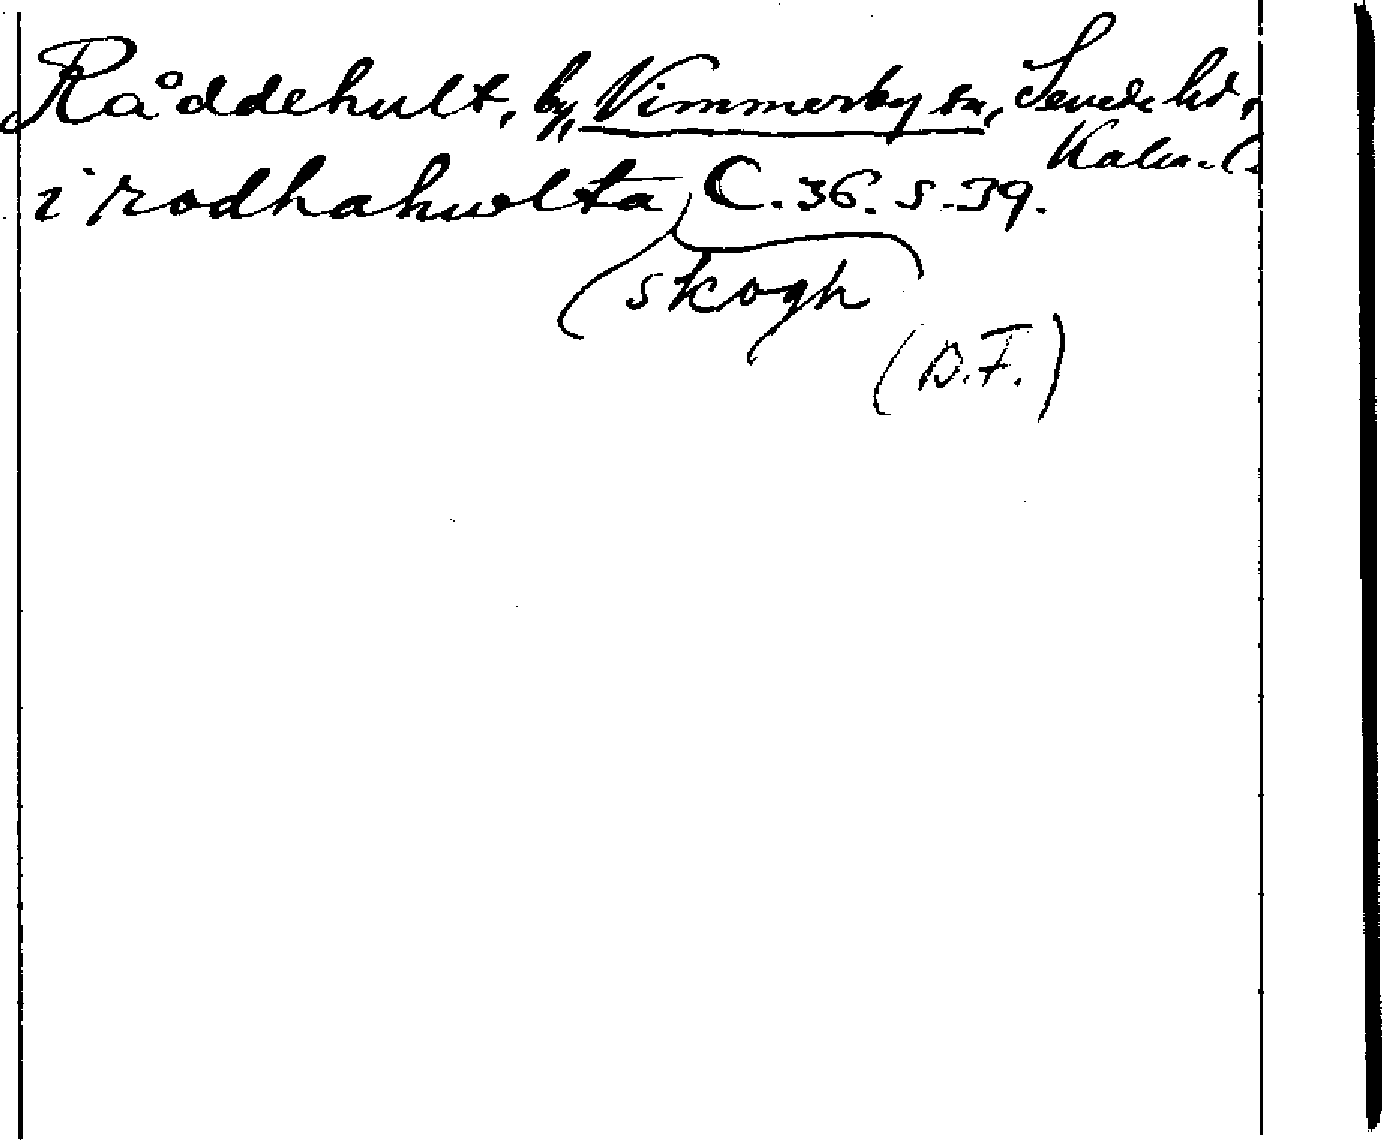 Råddehult, by, Vimmerby sn, Sevede hd,
Kalm. l.
i rodhahwlta C. 36. s. 39.
skogh
(D.F.)